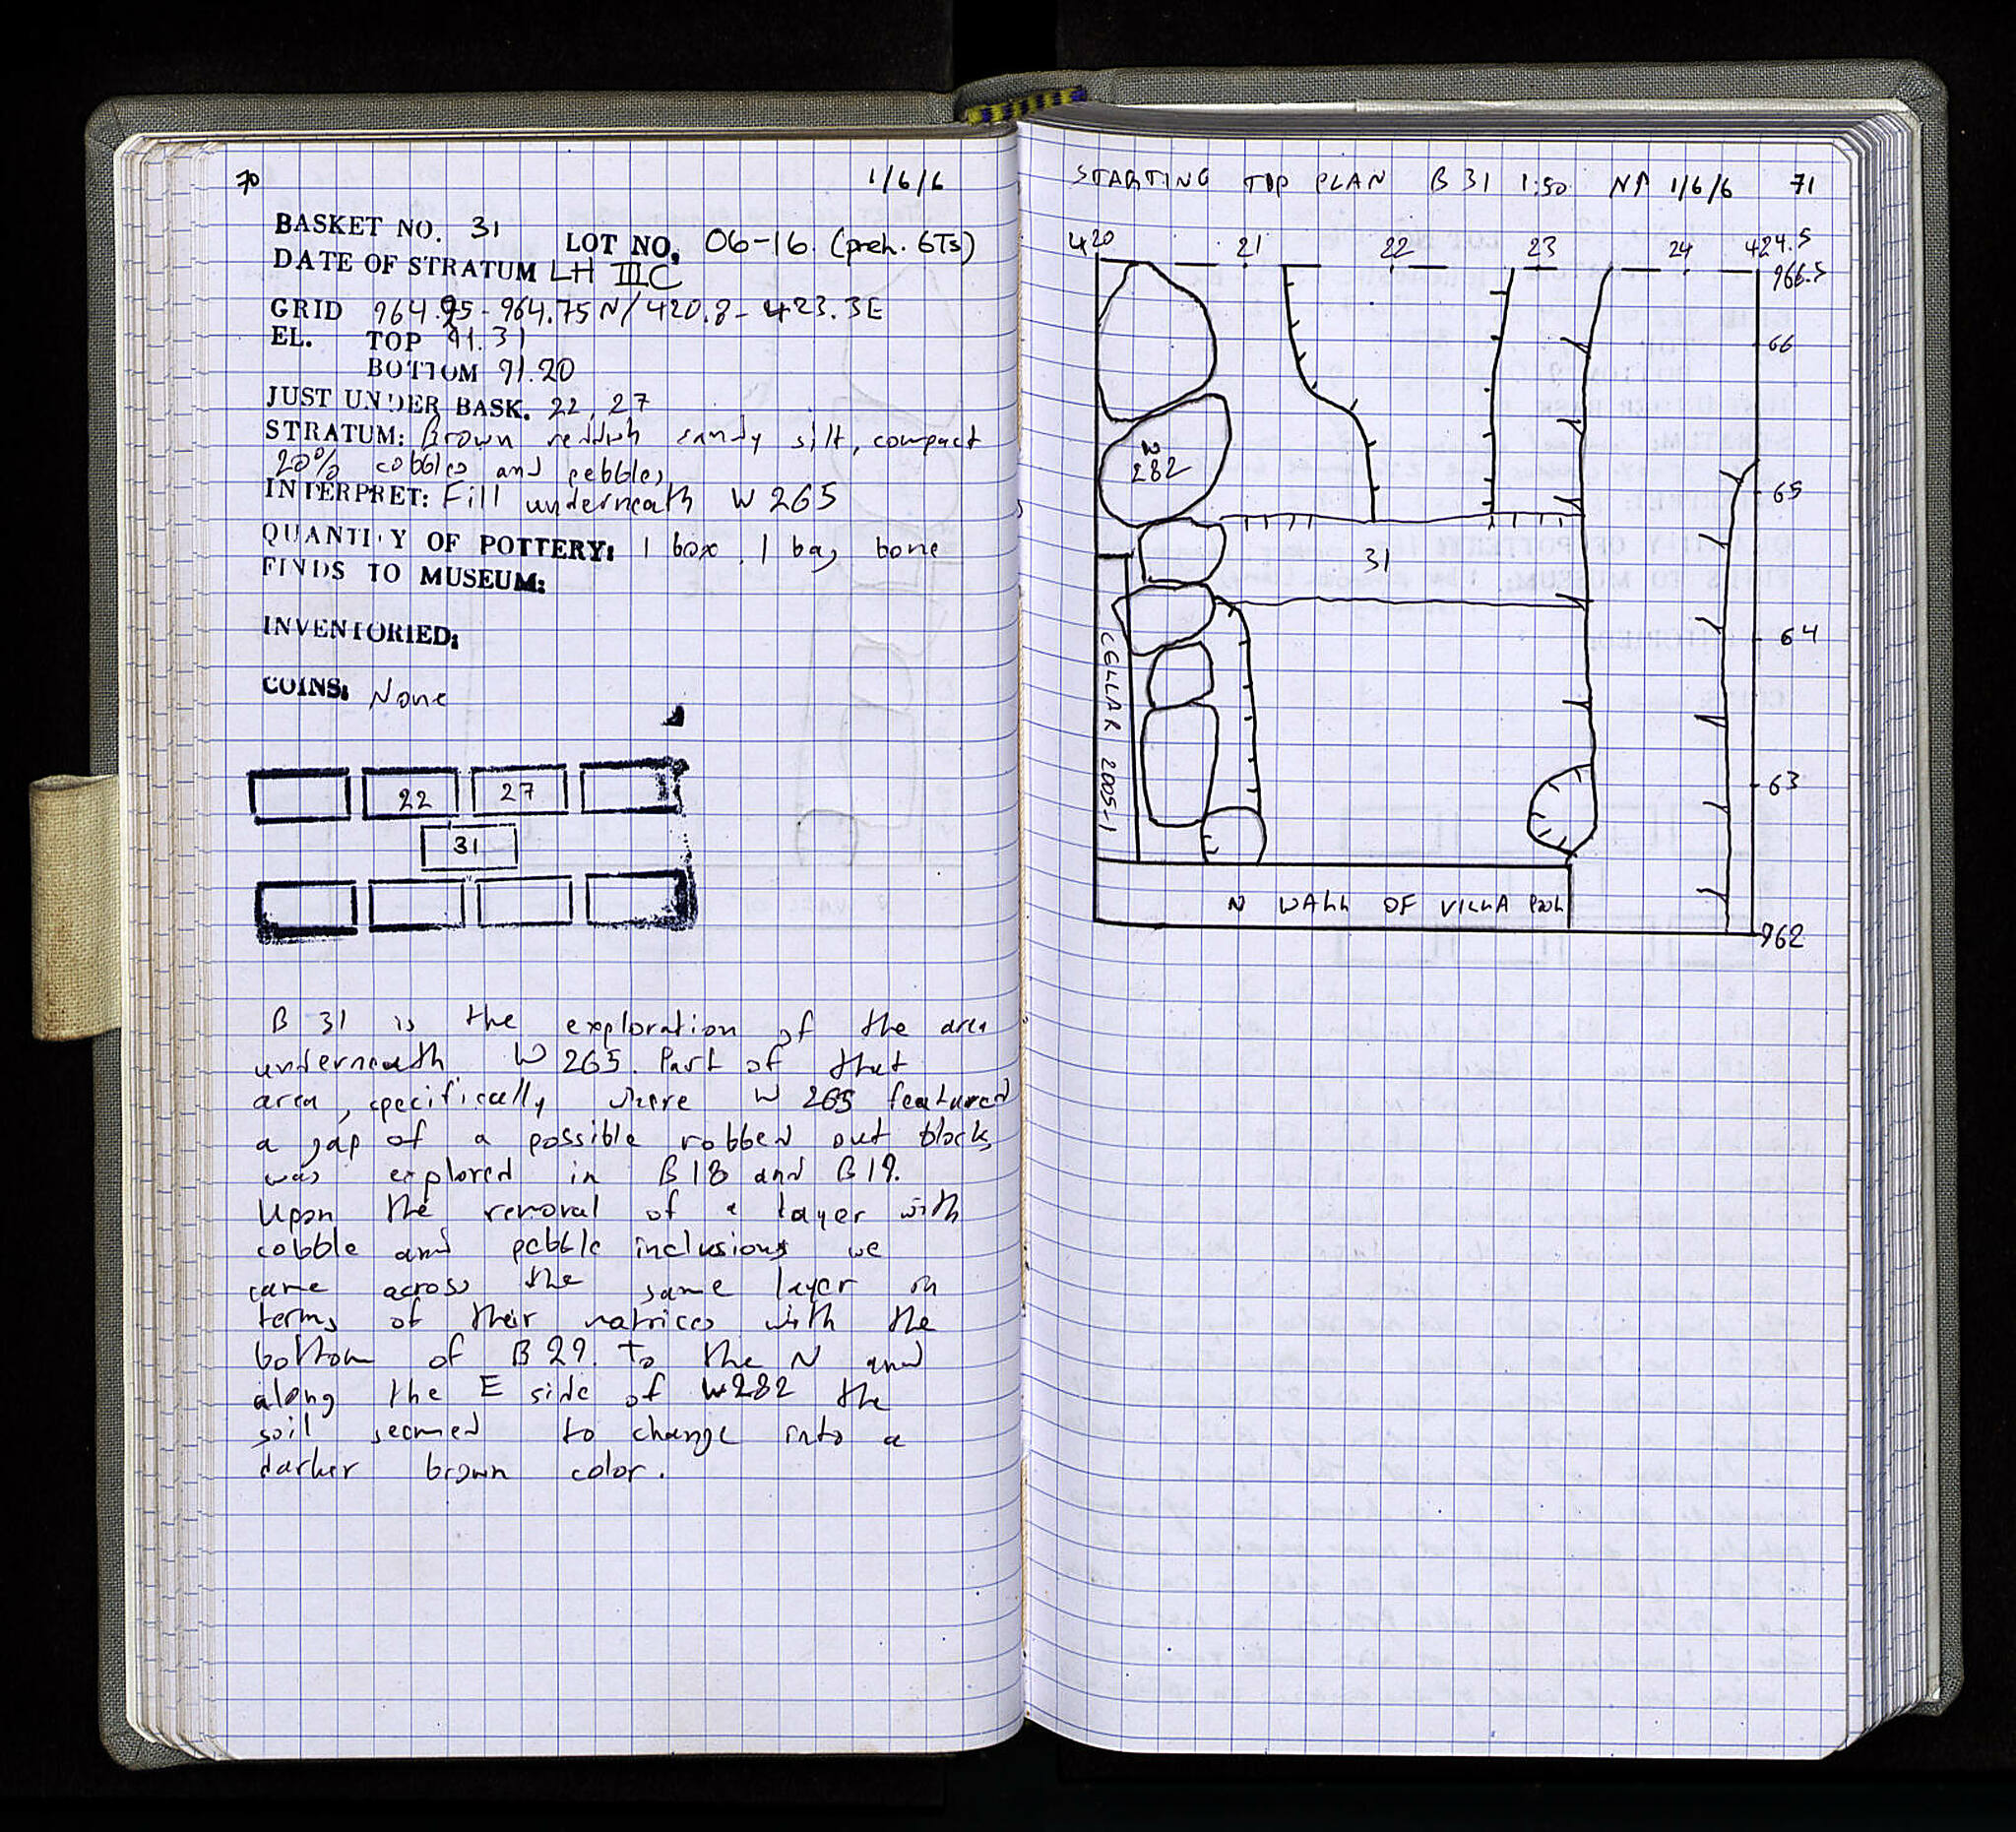 70
1/6/6
BASKET NO. 31 LOT NO. 06-16. (preh. 6Ts)
DATE OF STRATUM LH IIIC
GRID 964.95 - 964.75 N/ 420.8 - 423.3E
EL. TOP 91.31
BOTTOM 91.20
JUST UNDER BASK. 22, 27
STRATUM: Brown reddish sandy silt, compact
20% cobbles and pebbles
INTERPRET: Fill underneath W 265
QUANTITY OF POTTERY: 1 box. 1 bag bone
FINDS TO MUSEUM:
INVENTORIED:
COINS: None
22 27
31
B 31 is the exploration of the area
underneath W 265. Part of that
area, specifically where W 265 featured
a gap of a possible robbed out block,
was explored in B18 and B19.
Upon the removal of a layer with
cobble and pebble inclusions we
came across the same layer in
terms of their matrices with the
bottom of B29. To the N and
along the E side of W282 the
soil seemed to change into a
darker brown color.
STARTING TOP PLAN B 31 1:50 1/6/6 71
420 21 22 23 24 424.5
966.5
66
W
282
65
31
64
CELLAR 2005-1
63
N WALL OF VILLA
962